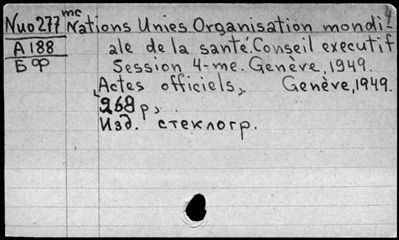 Nuo277 mc Nations Unies. Organisation mondi-
A188 ale de la santé. Conseil executif
БФ Session 4-me. Genève, 1949.
Actes officiels, Genève, 1949.
268 p,
Изд. стеклогр.